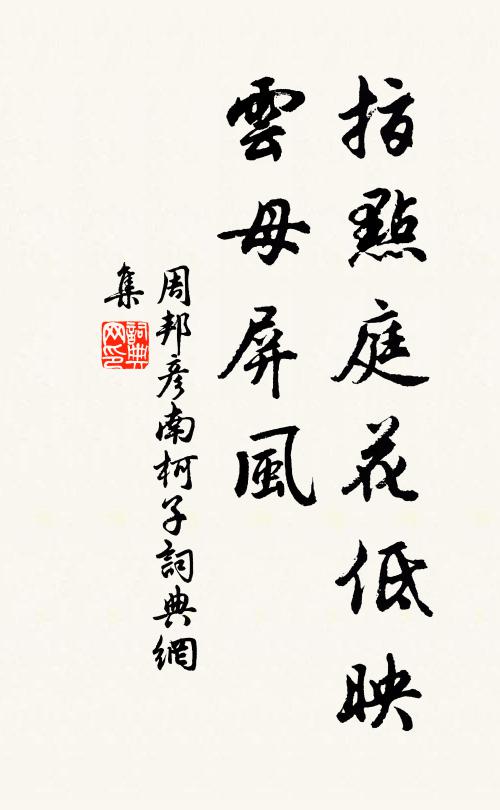 指點庭花低映
雲母屏風
周邦彥南柯子詞典網
集
詞典網印